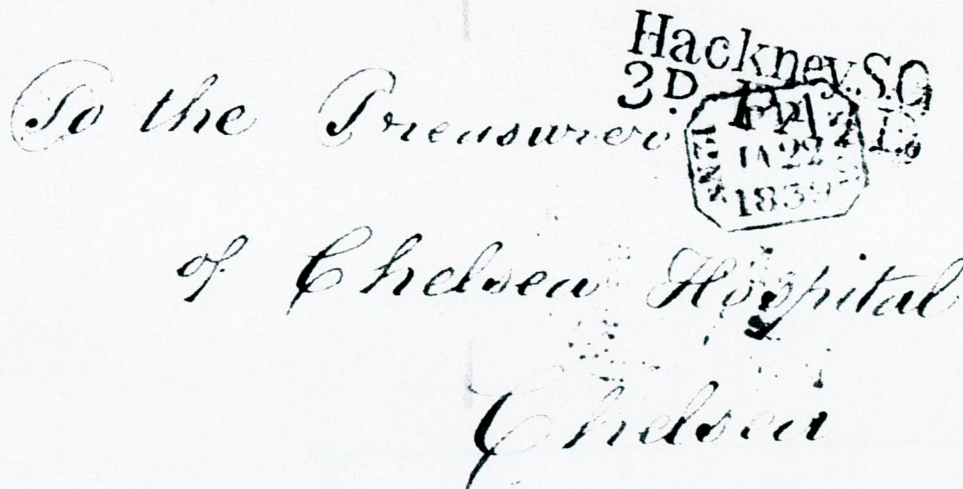 Hackney S.O
3D P
JA 22
1839
To the Treasurer
of Chelsea Hospital
Chelsea